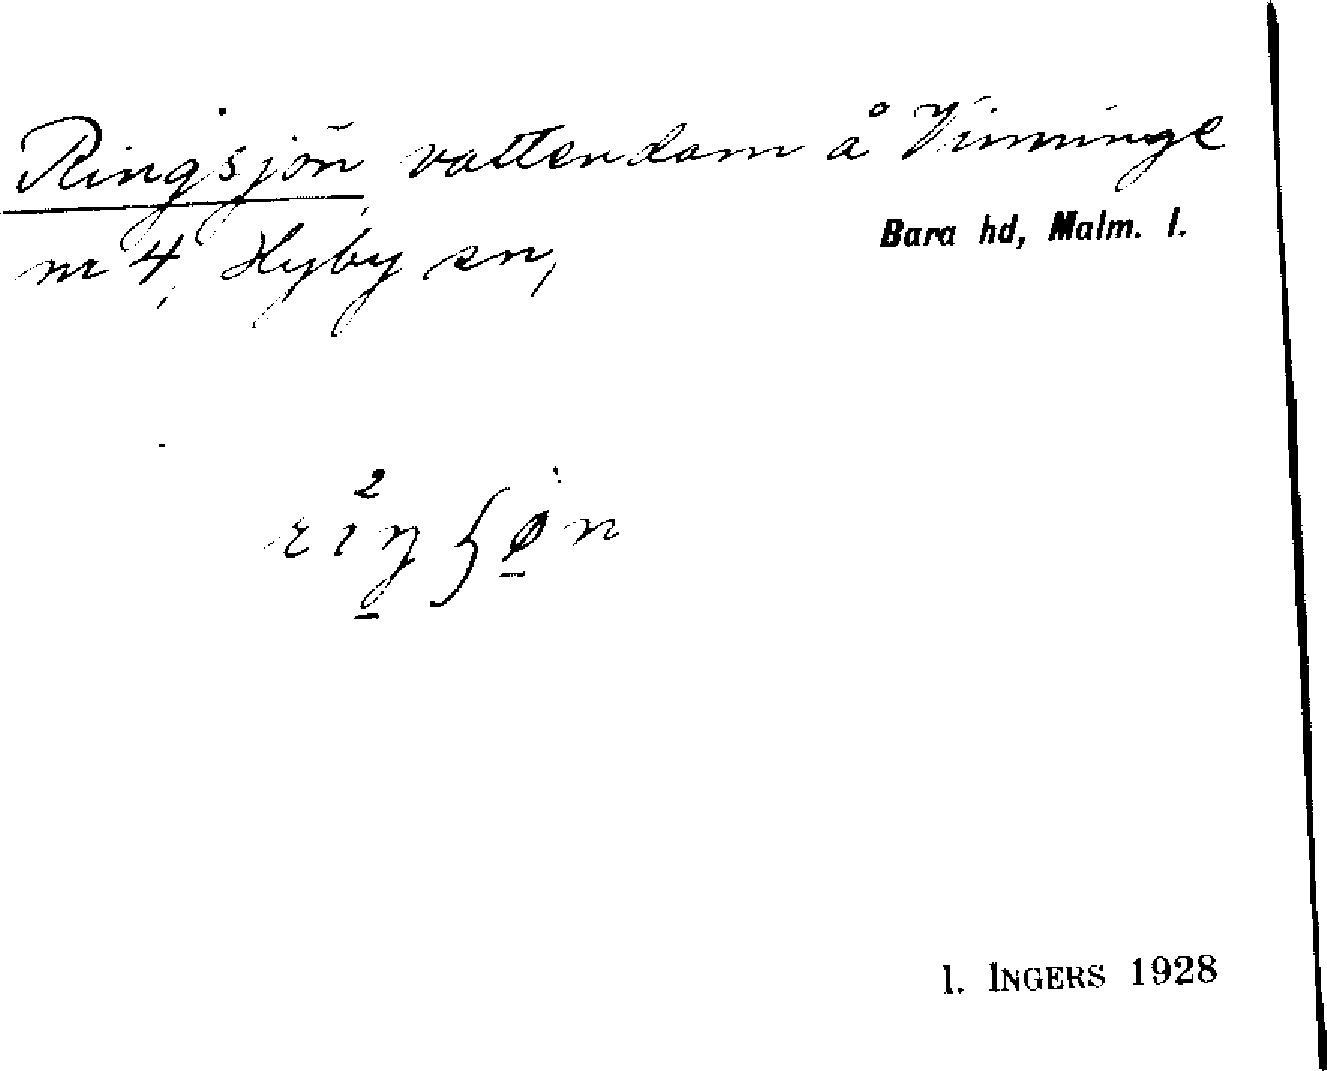 Ringsjön vattendam å Vinninge
nr 4, Hyby sn,
Bara hd, Malm. l.
I. INGERS 1928